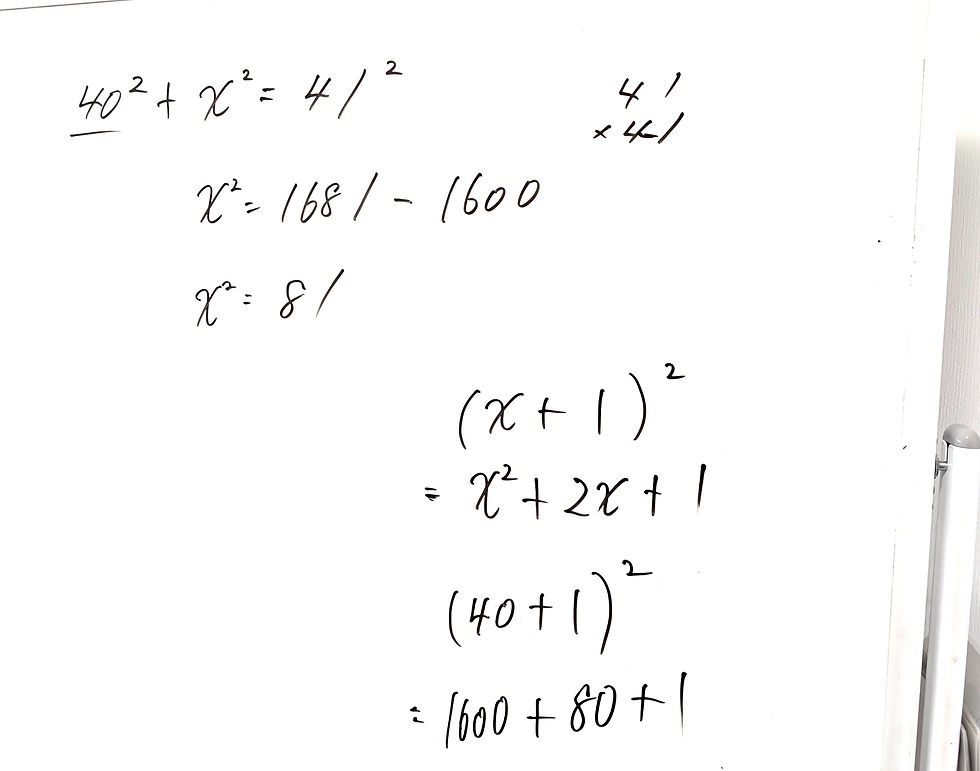 40² + x² = 41²
41
× 41
x² = 1681 - 1600
x² = 81
(x + 1)²
= x² + 2x + 1
(40 + 1)²
= 1600 + 80 + 1